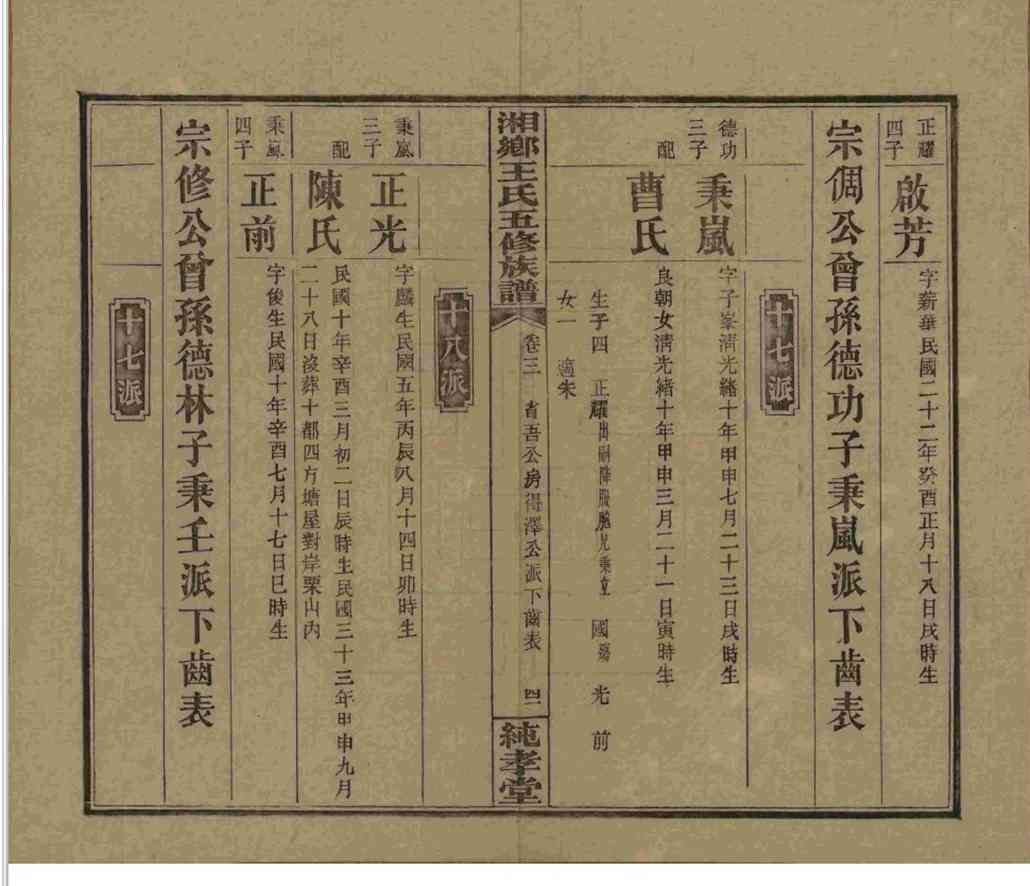 正耀四子
啟芳
字新華民國二十二年癸酉正月十八日戌時生
宗倜公曾孫德功子秉嵐派下齒表
十七派
德功三子
秉嵐
字子峯清光緒十年甲申七月二十三日戌時生
配
曹氏
良朝女清光緒十年甲申三月二十一日寅時生
生子四 正耀出嗣降服胞兄秉立 國 光 前
女一 適朱
湘鄉王氏五修族譜
卷三 省吾公房得澤公派下齒表 四二
純孝堂
十八派
秉嵐三子
正光
字麟生民國五年丙辰八月十四日卯時生
配
陳氏
民國十年辛酉三月初二日辰時生民國三十三年甲申九月
二十八日沒葬十都四方塘屋對岸栗山內
秉嵐四子
正前
字後生民國十年辛酉七月十七日巳時生
宗修公曾孫德林子秉壬派下齒表
十七派